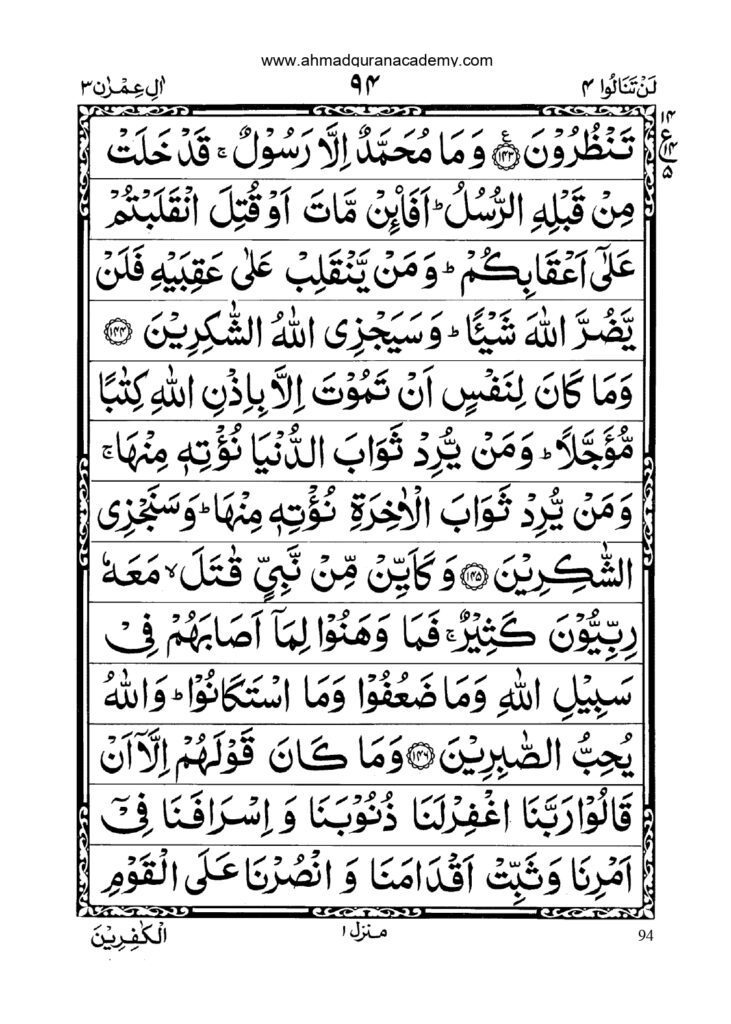 www.ahmadquranacademy.com
لَنْ تَنَالُوا ۴ ۹۴ اٰلِ عِمْرٰن ۳
۱۴
ع
۱۴
۵
تَنْظُرُوْنَ ﴿۱۴۳﴾ ع وَمَا مُحَمَّدٌ اِلَّا رَسُوْلٌ ۚ قَدْ خَلَتْ
مِنْ قَبْلِهِ الرُّسُلُ ؕ اَفَا۟ئِنْ مَّاتَ اَوْ قُتِلَ انْقَلَبْتُمْ
عَلٰٓى اَعْقَابِكُمْ ؕ وَمَنْ يَّنْقَلِبْ عَلٰى عَقِبَيْهِ فَلَنْ
يَّضُرَّ اللّٰهَ شَيْـًٔا ؕ وَسَيَجْزِى اللّٰهُ الشّٰكِرِيْنَ ﴿۱۴۴﴾
وَمَا كَانَ لِنَفْسٍ اَنْ تَمُوْتَ اِلَّا بِاِذْنِ اللّٰهِ كِتٰبًا
مُّؤَجَّلًا ؕ وَمَنْ يُّرِدْ ثَوَابَ الدُّنْيَا نُؤْتِهٖ مِنْهَا ۚ
وَمَنْ يُّرِدْ ثَوَابَ الْاٰخِرَةِ نُؤْتِهٖ مِنْهَا ؕ وَسَنَجْزِى
الشّٰكِرِيْنَ ﴿۱۴۵﴾ وَكَاَيِّنْ مِّنْ نَّبِىٍّ قٰتَلَ ۙ مَعَهٗ
رِبِّيُّوْنَ كَثِيْرٌ ۚ فَمَا وَهَنُوْا لِمَاۤ اَصَابَهُمْ فِىْ
سَبِيْلِ اللّٰهِ وَمَا ضَعُفُوْا وَمَا اسْتَكَانُوْا ؕ وَاللّٰهُ
يُحِبُّ الصّٰبِرِيْنَ ﴿۱۴۶﴾ وَمَا كَانَ قَوْلَهُمْ اِلَّاۤ اَنْ
قَالُوْا رَبَّنَا اغْفِرْ لَنَا ذُنُوْبَنَا وَاِسْرَافَنَا فِىْۤ
اَمْرِنَا وَثَبِّتْ اَقْدَامَنَا وَانْصُرْنَا عَلَى الْقَوْمِ
94 منزل ۱ الْكٰفِرِيْنَ